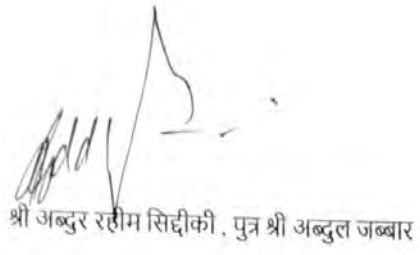 श्री अब्दुर रहीम सिद्दीकी , पुत्र श्री अब्दुल जब्बार